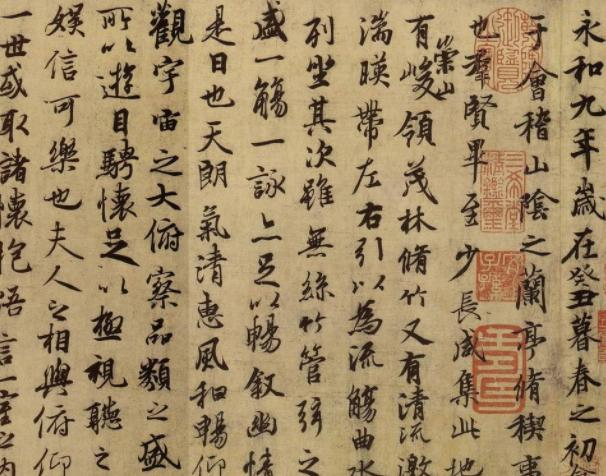 永和九年歲在癸丑暮春之初
于會稽山陰之蘭亭脩禊事
也羣賢畢至少長咸集此地
有崇山峻領茂林脩竹又有清流激
湍暎帶左右引以為流觴曲水
列坐其次雖無絲竹管弦之
盛一觴一詠亦足以暢敘幽情
是日也天朗氣清惠風和暢仰
觀宇宙之大俯察品類之盛
所以遊目騁懷足以極視聽之
娛信可樂也夫人之相與俯仰
一世或取諸懷抱悟言一室之內
三希堂精鑑璽
宜子孫